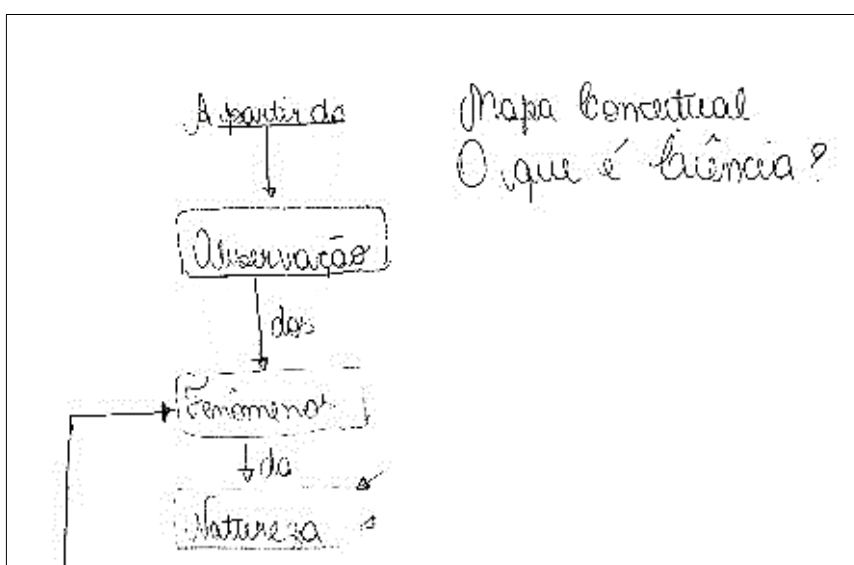 A partir da
Mapa Conceitual
O que é Ciência?
Observação
dos
Fenômenos
da
Natureza